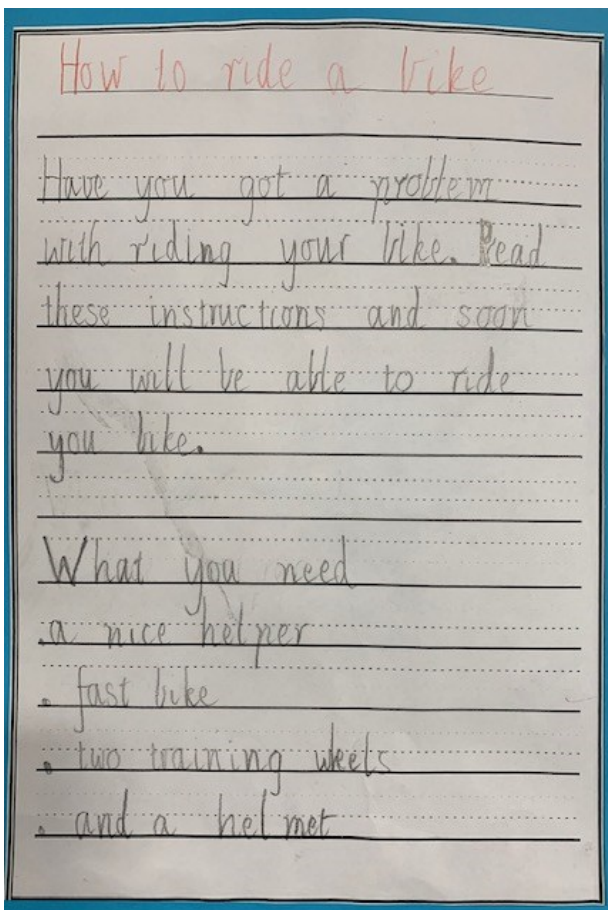 How to ride a bike
Have you got a problem
with riding your bike. Read
these instructions and soon
you will be able to ride
you bike.
What you need
.a nice helper
. fast bike
. two training wheels
. and a helmet